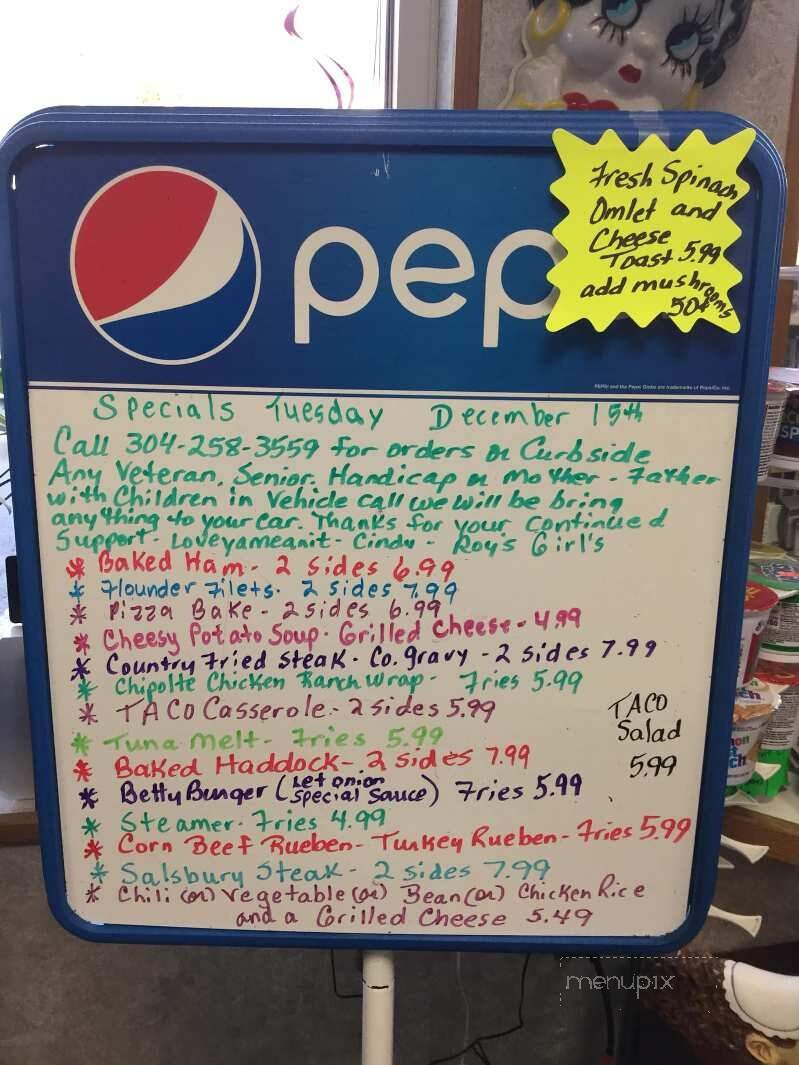 pep
Fresh Spinach
Omlet and
Cheese
Toast 5.99
add mushrooms
50¢
PEPSI and the Pepsi Globe are trademarks of PepsiCo, Inc.
Specials Tuesday December 15th
Call 304-258-3559 for orders or Curbside
Any Veteran, Senior, Handicap or Mother - Father
with Children in Vehicle call we will be bring
anything to your car. Thanks for your continued
Support - Loveyameanit - Cindy - Roy's Girl's
* Baked Ham - 2 sides 6.99
* Flounder Filets - 2 sides 7.99
* Pizza Bake - 2 sides 6.99
* Cheesy Potato Soup - Grilled Cheese - 4.99
* Country Fried Steak - Co. gravy - 2 sides 7.99
* Chipolte Chicken Ranch Wrap - Fries 5.99
* TACO Casserole - 2 sides 5.99
TACO
Salad
5.99
* Tuna Melt - Fries 5.99
* Baked Haddock - 2 sides 7.99
* Betty Burger (Let onion Special Sauce) Fries 5.99
* Steamer - Fries 4.99
* Corn Beef Rueben - Turkey Rueben - Fries 5.99
* Salsbury Steak - 2 sides 7.99
* Chili (or) Vegetable (or) Bean (or) Chicken Rice
and a Grilled Cheese 5.49
menupix